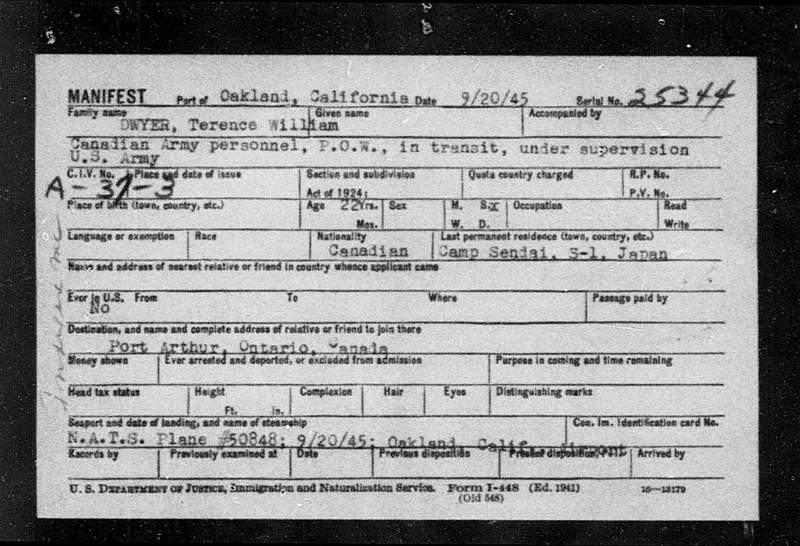 MANIFEST Port of Oakland, California Date 9/20/45 Serial No. 25344
Family name Given name Accompanied by
DWYER, Terence William
Canadian Army personnel, P.O.W., in transit, under supervision
U.S. Army
C.I.V. No. Place and date of issue Section and subdivision Quota country charged R.P. No.
A-37-3 Act of 1924: P.V. No.
Place of birth (town, country, etc.) Age 22 Yrs. Sex M. S.x Occupation Read
Mos. W. D. Write
Language or exemption Race Nationality Last permanent residence (town, country, etc.)
Canadian Camp Sendai, S-1, Japan
Name and address of nearest relative or friend in country whence applicant came
Ever in U.S. From To Where Passage paid by
No
Destination, and name and complete address of relative or friend to join there
Port Arthur, Ontario, Canada
Money shown Ever arrested and deported, or excluded from admission Purpose in coming and time remaining
Head tax status Height Complexion Hair Eyes Distinguishing marks
Ft. In.
Seaport and date of landing, and name of steamship Con. Im. Identification card No.
N.A.T.S. Plane #50848; 9/20/45; Oakland, Calif. Airport
Records by Previously examined at Date Previous disposition Present disposition, Arrived by
U. S. DEPARTMENT OF JUSTICE, Immigration and Naturalization Service. Form I-448 (Ed. 1941) 16—13179
(Old 548)